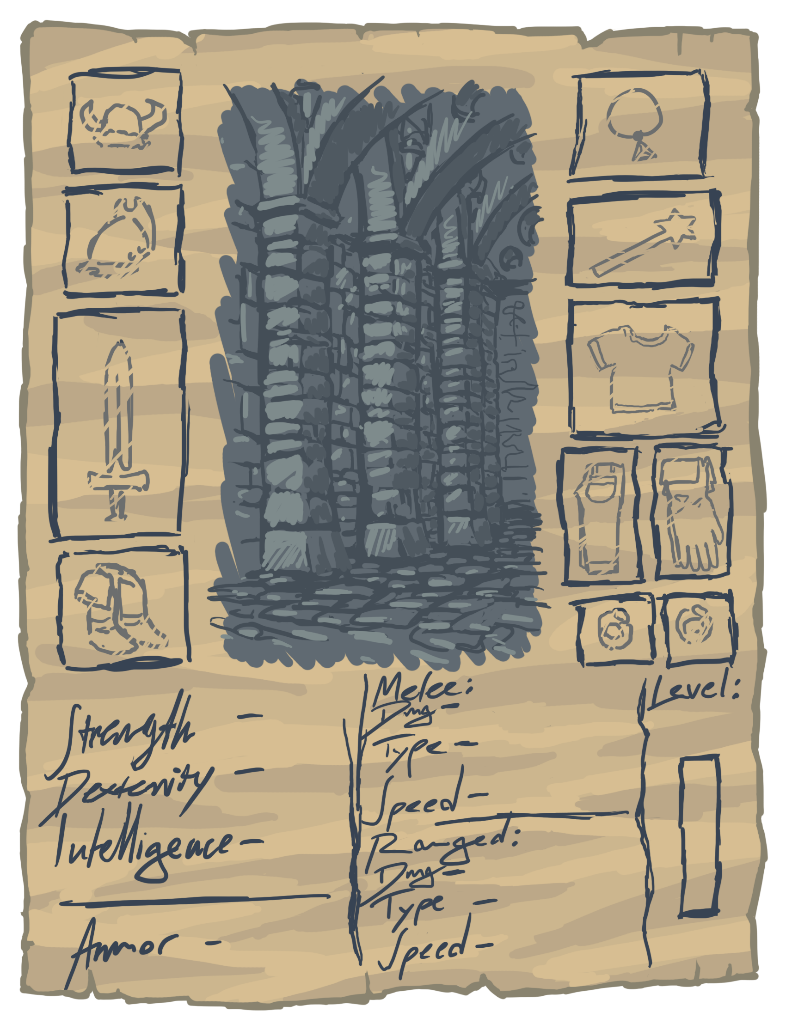 Strength -
Dexterity -
Intelligence -
Armor -
Melee:
Dmg -
Type -
Speed -
Ranged:
Dmg -
Type -
Speed -
Level: